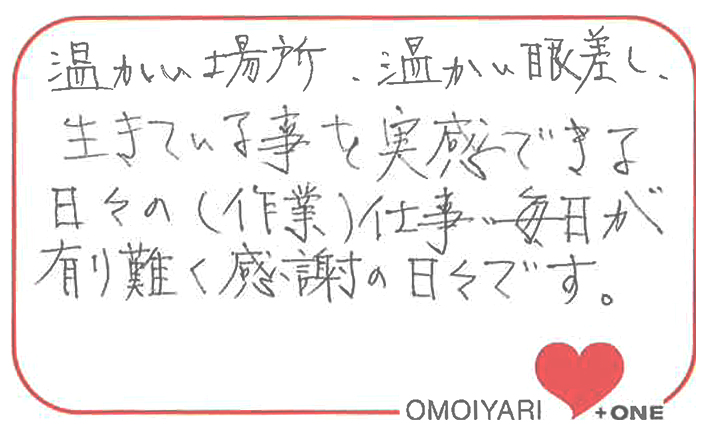 温かい場所、温かい眼差し、
生きている事を実感できる
日々の(作業)仕事、毎日が
有り難く感謝の日々です。
OMOIYARI +ONE